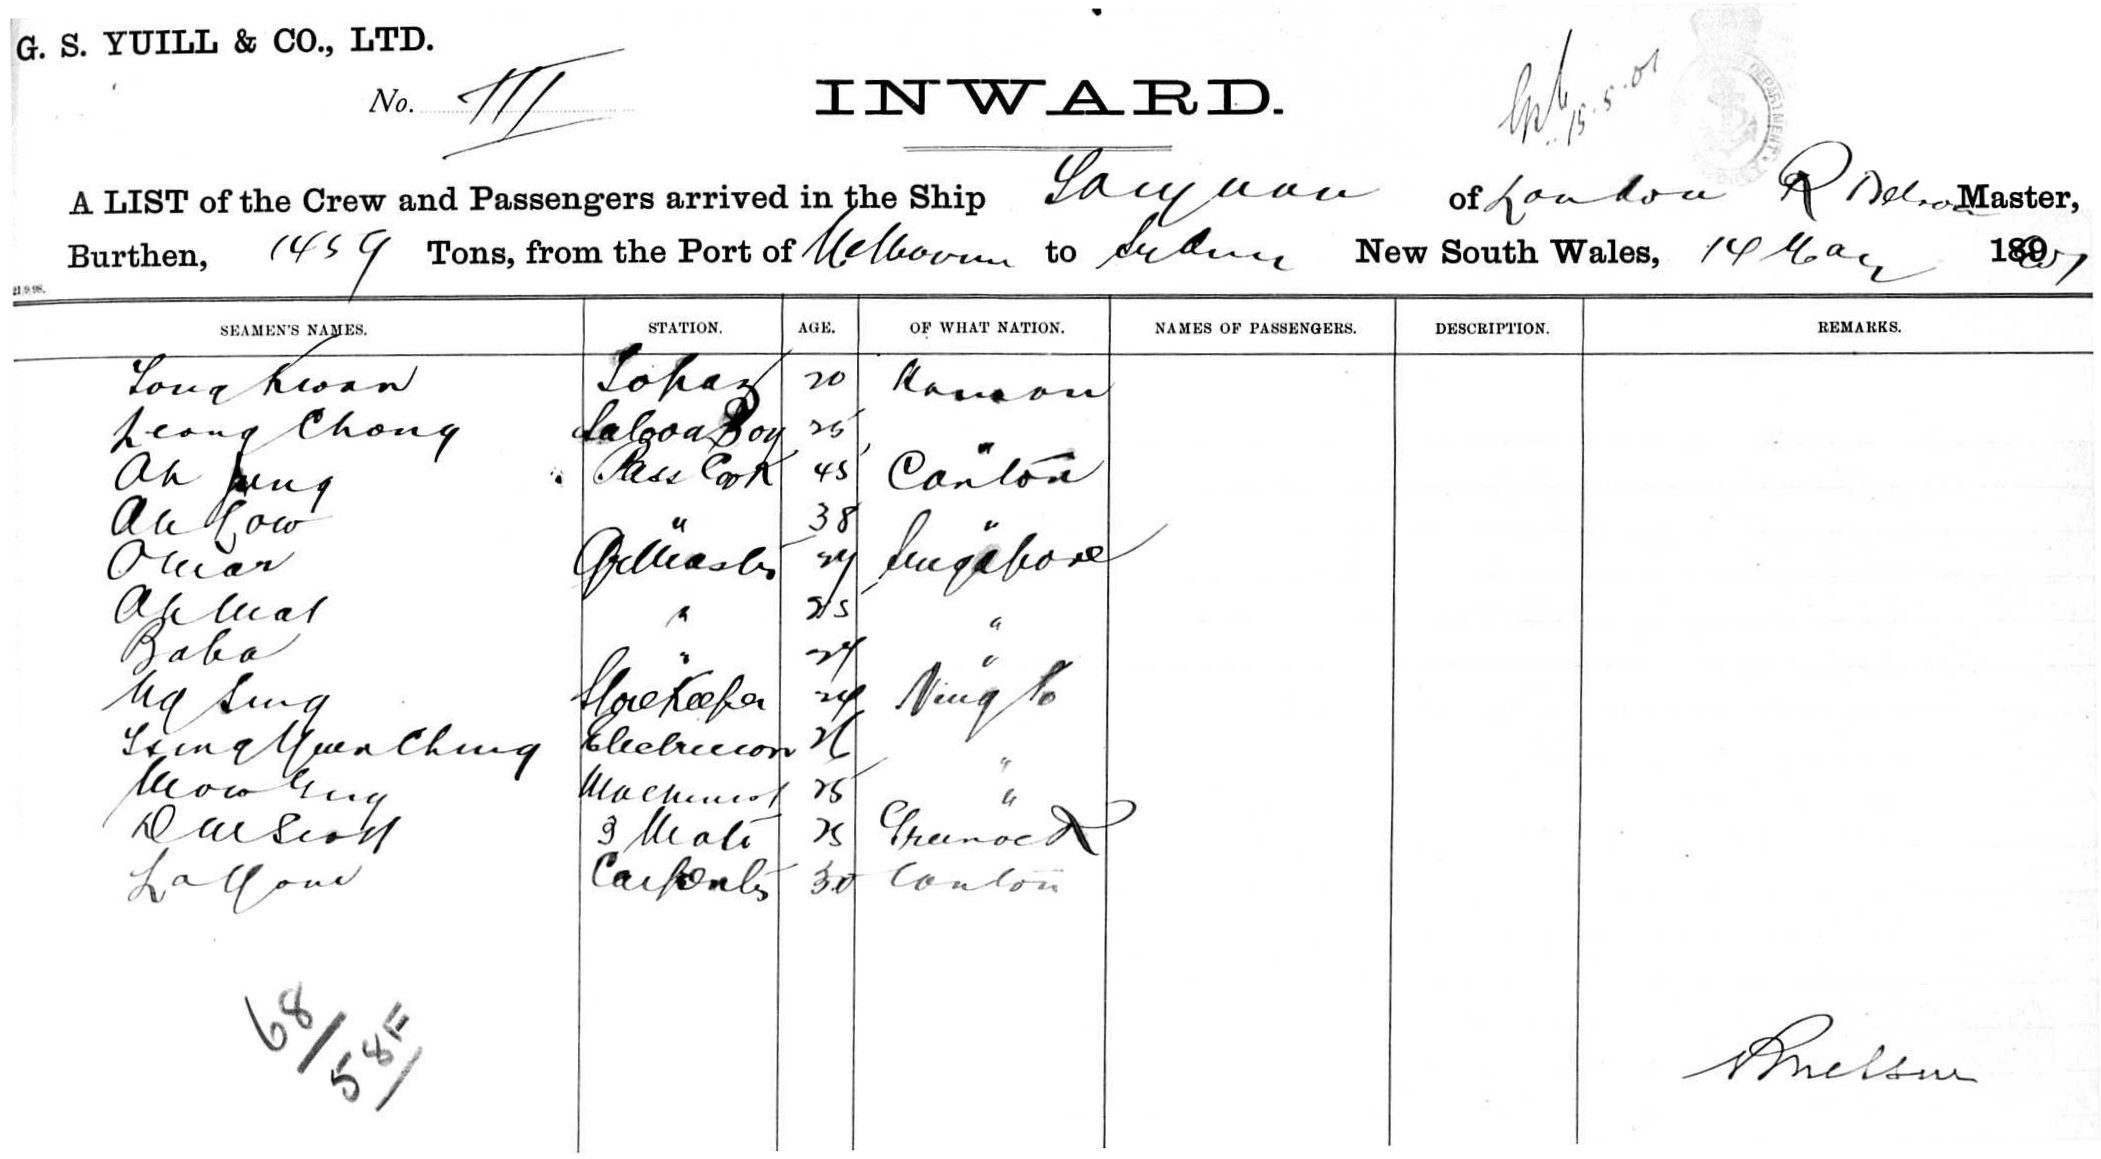 G. S. YUILL & CO., LTD.
No. III
INWARD.
15.5.01
DEPARTMENT
A LIST of the Crew and Passengers arrived in the Ship Taiyuan of London R Nelson Master,
Burthen, 1459 Tons, from the Port of Melbourne to Sydney New South Wales, 14 May 1901
21.9.98.
SEAMEN'S NAMES. STATION. AGE. OF WHAT NATION. NAMES OF PASSENGERS. DESCRIPTION. REMARKS.
Tong Kwan Topaz 20
Leong Chong Saloon Boy 25 "
Ah Jung Pass Cook 45 Canton
Ah Cow " 38 "
Omar Qr Master 24 Singapore
Ahmat " 25 "
Baba " 24 "
Ng Sing Storekeeper 24 Ning Po
Tsing Yuen Ching Electrician "
Mow Machinist 25 "
D M Scott 3 Mate 25 Greenock
Carpenter 30 Canton
68/58F
R Nelson